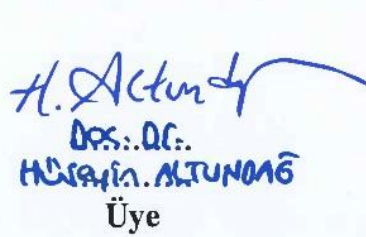 H. Altundağ
Doç. Dr.
Hüseyin ALTUNDAĞ
Üye